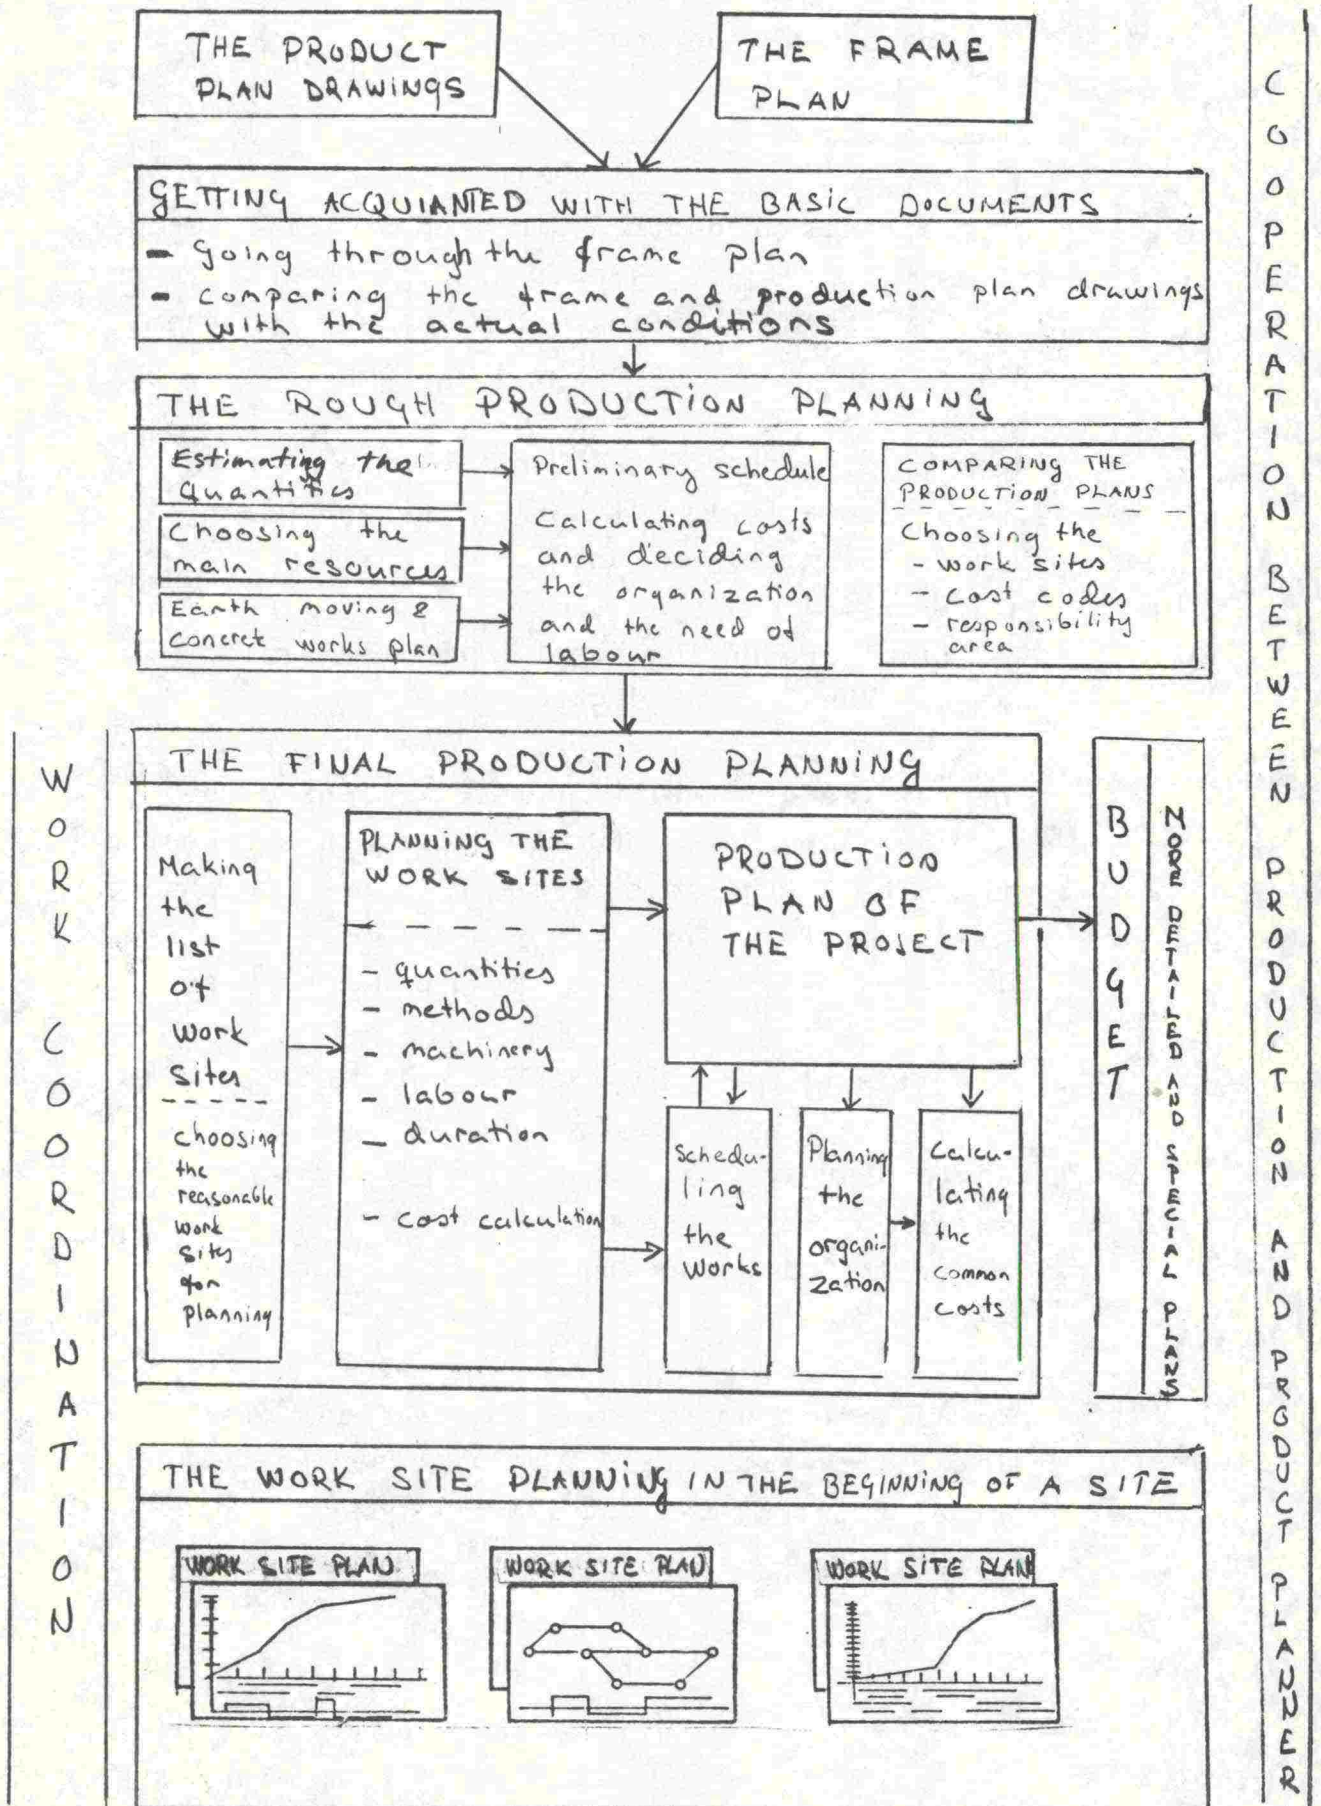 THE PRODUCT
PLAN DRAWINGS
THE FRAME
PLAN
GETTING ACQUIANTED WITH THE BASIC DOCUMENTS
- Going through the frame plan
- comparing the frame and production plan drawings
with the actual conditions
THE ROUGH PRODUCTION PLANNING
Estimating the
quantities
Choosing the
main resources
Earth moving &
concret works plan
Preliminary schedule
Calculating costs
and deciding
the organization
and the need of
labour
COMPARING THE
PRODUCTION PLANS
Choosing the
- work sites
- cost codes
- responsibility
area
THE FINAL PRODUCTION PLANNING
Making
the
list
of
work
sites
choosing
the
reasonable
work
sites
for
planning
PLANNING THE
WORK SITES
- quantities
- methods
- machinery
- labour
- duration
- cost calculation
PRODUCTION
PLAN OF
THE PROJECT
Schedu-
ling
the
works
Planning
the
organi-
zation
Calcu-
lating
the
common
costs
BUDGET
MORE DETAILED AND SPECIAL PLANS
THE WORK SITE PLANNING IN THE BEGINNING OF A SITE
WORK SITE PLAN
WORK SITE PLAN
WORK SITE PLAN
WORK COORDINATION
COOPERATION BETWEEN PRODUCTION AND PRODUCT PLANNER